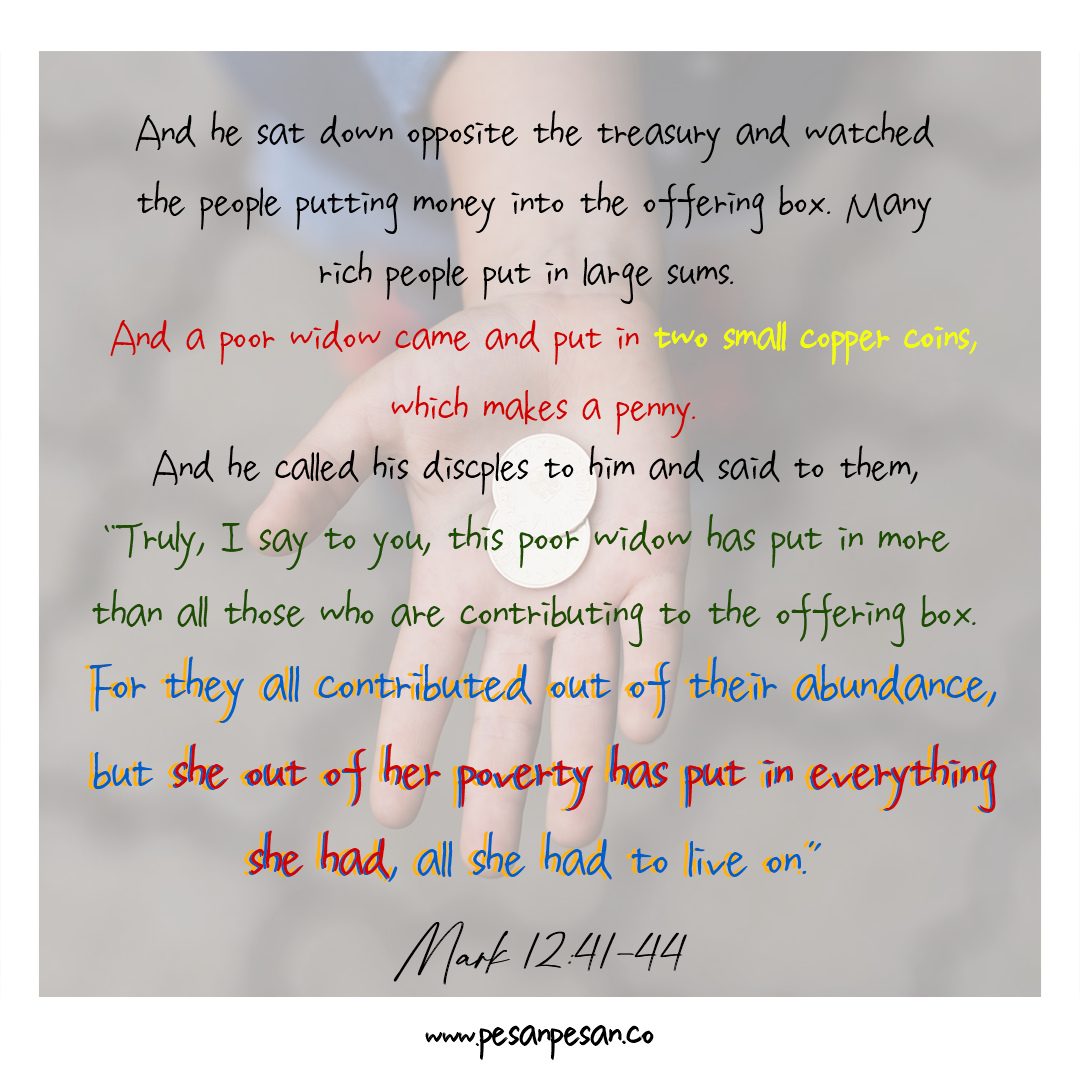 And he sat down opposite the treasury and watched
the people putting money into the offering box. Many
rich people put in large sums.
And a poor widow came and put in two small copper coins,
which makes a penny.
And he called his discples to him and said to them,
“Truly, I say to you, this poor widow has put in more
than all those who are contributing to the offering box.
For they all contributed out of their abundance,
but she out of her poverty has put in everything
she had, all she had to live on.”
Mark 12:41-44
www.pesanpesan.co